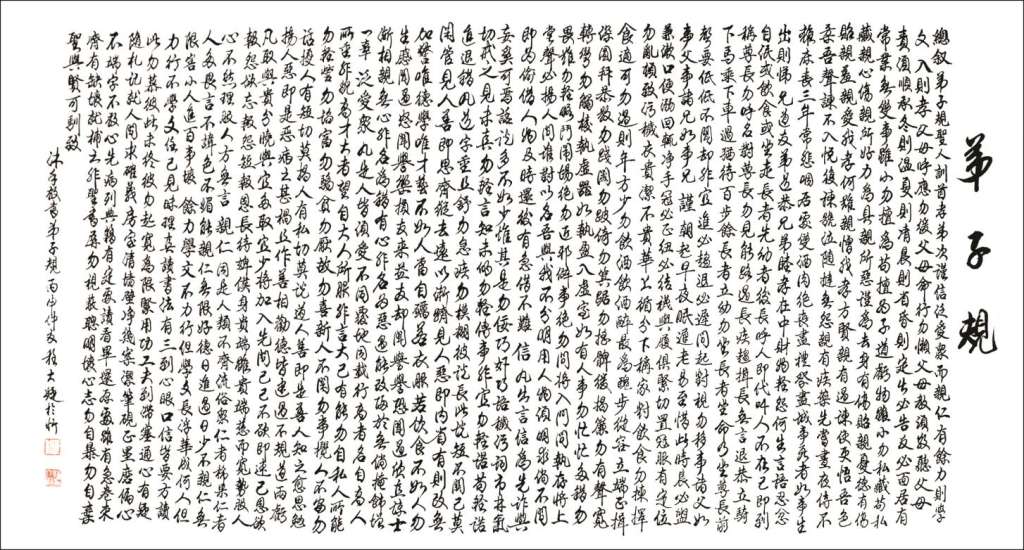 弟子規
總敘 弟子規聖人訓首孝弟次謹信泛愛衆而親仁有餘力則學
文 入則孝 父母呼應勿緩父母命行勿懶父母教須敬聽父母
責須順承冬則溫夏則凊晨則省昏則定出必告反必面居有
常業無變事雖小勿擅爲苟擅爲子道虧物雖小勿私藏苟私
藏親心傷親所好力爲具親所惡謹爲去身有傷貽親憂德有傷
貽親羞親愛我孝何難親憎我孝方賢親有過諫使更怡吾色
柔吾聲諫不入悅復諫號泣隨撻無怨親有疾藥先嘗晝夜侍不
離床喪三年常悲咽居處變酒肉絕喪盡禮祭盡誠事死者如事生
出則悌 兄道友弟道恭兄弟睦孝在中財物輕怨何生言語忍忿
自泯或飲食或坐走長者先幼者後長呼人即代叫人不在己即到
稱尊長勿呼名對尊長勿見能路遇長疾趨揖長無言退恭立騎
下馬乘下車過猶待百步餘長者立幼勿坐長者坐命乃坐尊長前
聲要低低不聞卻非宜進必趨退必遲問起對視勿移事諸父如
事父事諸兄如事兄 謹 朝起早夜眠遲老易至惜此時晨必盥
兼漱口便溺回輒淨手冠必正紐必結襪與履俱緊切置冠服有定位
勿亂頓致污穢衣貴潔不貴華上循分下稱家對飲食勿揀擇
食適可勿過則年方少勿飲酒飲酒醉最爲醜步從容立端正揖
深圓拜恭敬勿踐閾勿跛倚勿箕踞勿搖髀緩揭簾勿有聲寬
轉彎勿觸棱執虛器如執盈入虛室如有人事勿忙忙多錯勿
畏難勿輕略鬥鬧場絕勿近邪僻事絕勿問將入門問孰存將上
堂聲必揚人問誰對以名吾與我不分明用人物須明求倘不問
即爲偷借人物及時還後有急借不難 信 凡出言信爲先詐與
妄奚可焉話說多不如少惟其是勿佞巧奸巧語穢污詞市井氣
切戒之見未真勿輕言知未的勿輕傳事非宜勿輕諾苟輕諾
進退錯凡道字重且舒勿急疾勿模糊彼說長此說短不關己莫
閒管見人善即思齊縱去遠以漸躋見人惡即內省有則改無
加警唯德學唯才藝不如人當自礪若衣服若飲食不如人勿
生慼聞過怒聞譽樂損友來益友卻聞譽恐聞過欣直諒士
漸相親無心非名爲錯有心非名爲惡過能改歸於無倘掩飾增
一辜 泛愛衆 凡是人皆須愛天同覆地同載行高者名自高人
所重非貌高才大者望自大人所服非言大己有能勿自私人所能
勿輕訾勿諂富勿驕貧勿厭故勿喜新人不閒勿事攪人不安勿
話擾人有短切莫揭人有私切莫說道人善即是善人知之愈思勉
揚人惡即是惡疾之甚禍且作善相勸德皆建過不規道兩虧
凡取與貴分曉與宜多取宜少將加人先問己己不欲即速已恩欲
報怨欲忘報怨短報恩長待婢僕身貴端雖貴端慈而寬勢服人
心不然理服人方無言 親仁 同是人類不齊流俗衆仁者稀果仁者
人多畏言不諱色不媚能親仁無限好德日進過日少不親仁無
限害小人進百事壞 餘力學文 不力行但學文長浮華成何人但
力行不學文任己見昧理真讀書法有三到心眼口信皆要方讀
此勿慕彼此未終彼勿起寬爲限緊用功工夫到滯塞通心有疑
隨札記就人問求確義房室清牆壁淨几案潔筆硯正墨磨偏心
不端字不敬心先病列典籍有定處讀看畢還原處雖有急卷束
齊有缺壞就補之非聖書屏勿視蔽聰明壞心志勿自暴勿自棄
聖與賢可馴致
沐手敬書弟子規 丙申仲